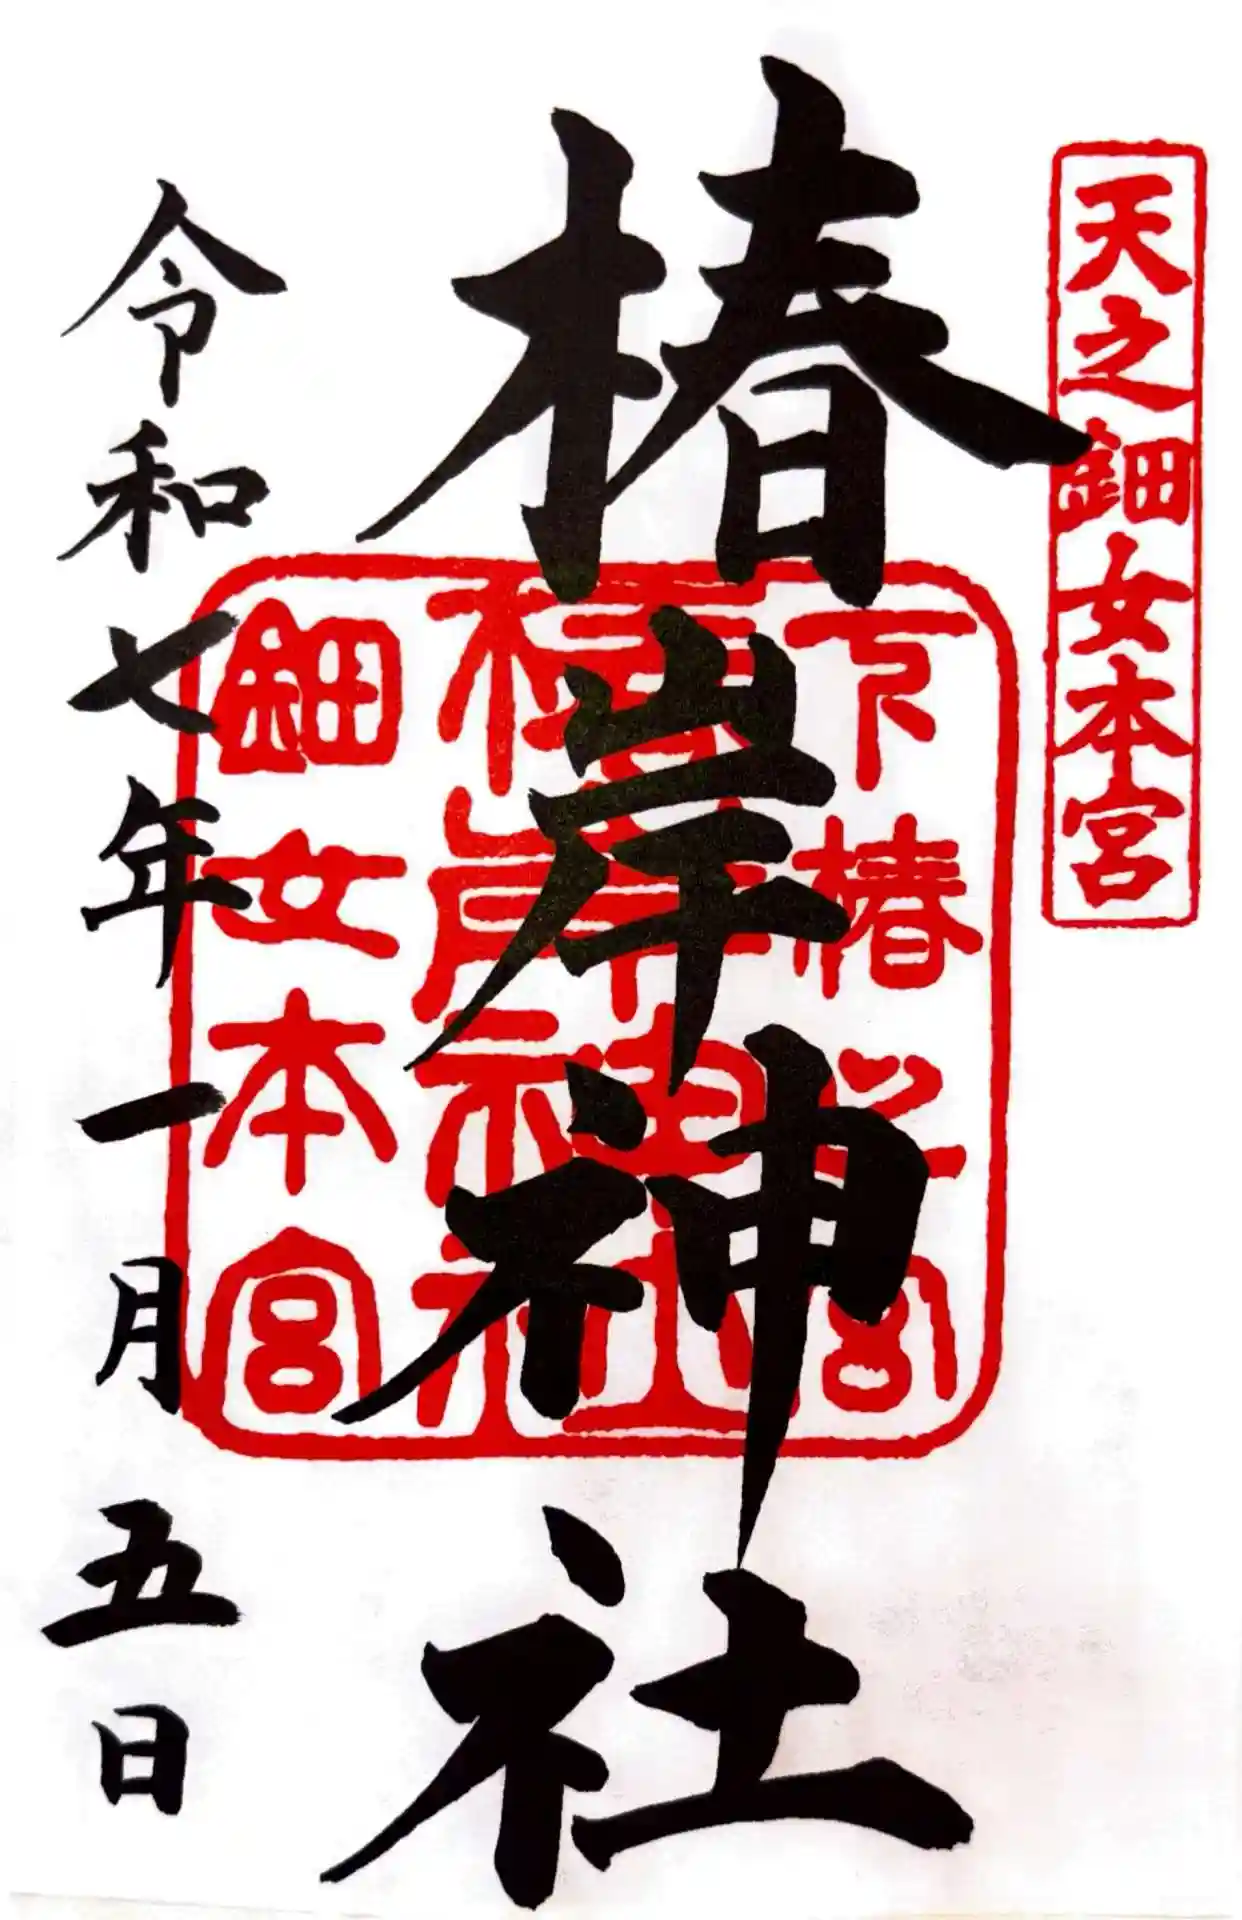 天之鈿女本宮
椿岸神社
下椿之宮
椿岸神社
鈿女本宮
令和七年一月五日